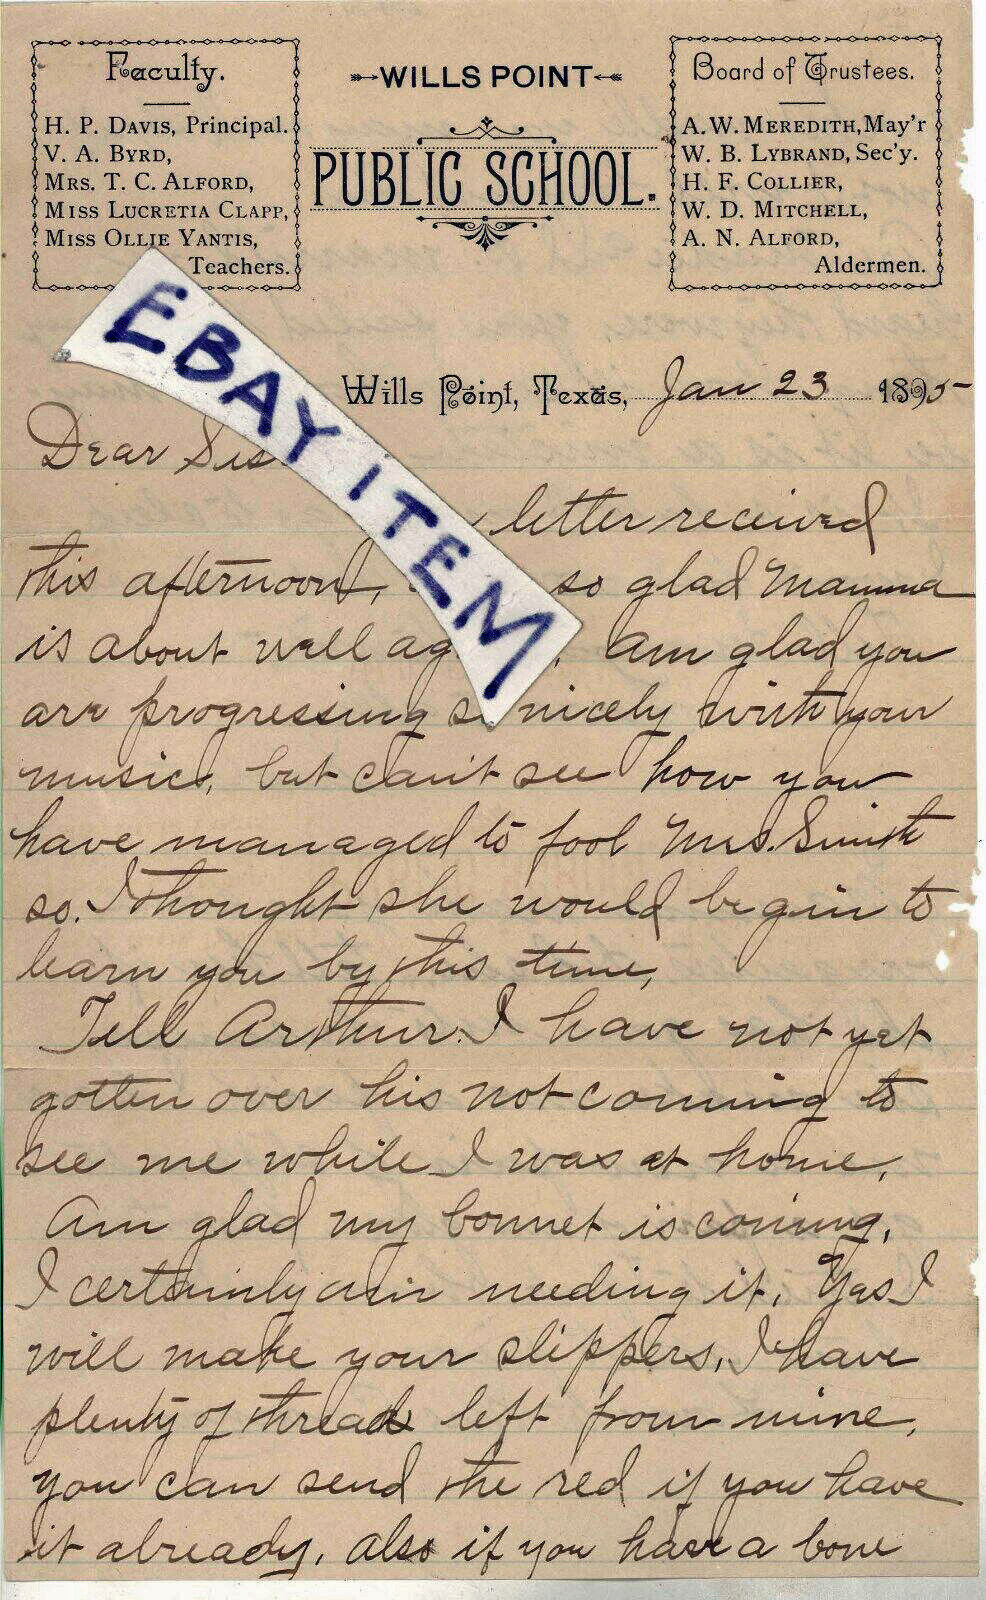 Faculty.
H. P. DAVIS, Principal.
V. A. BYRD,
MRS. T. C. ALFORD,
MISS LUCRETIA CLAPP,
MISS OLLIE YANTIS,
Teachers.
WILLS POINT
PUBLIC SCHOOL.
Board of Trustees.
A. W. MEREDITH, May'r
W. B. LYBRAND, Sec'y.
H. F. COLLIER,
W. D. MITCHELL,
A. N. ALFORD,
Aldermen.
EBAY ITEM
Wills Point, Texas, Jan 23 1895
Dear Sis
letter received
this afternoon, so glad Mamma
is about well ag. Am glad you
are progressing so nicely with your
music, but can't see how you
have managed to fool Mrs. Smith
so. I thought she would begin to
learn you by this time,
Tell Arthur I have not yet
gotten over his not coming to
see me while I was at home.
Am glad my bonnet is coming,
I certainly am needing it. Yas I
will make your slippers, I have
plenty of thread left from mine,
you can send the red if you have
it already, also if you have a bone